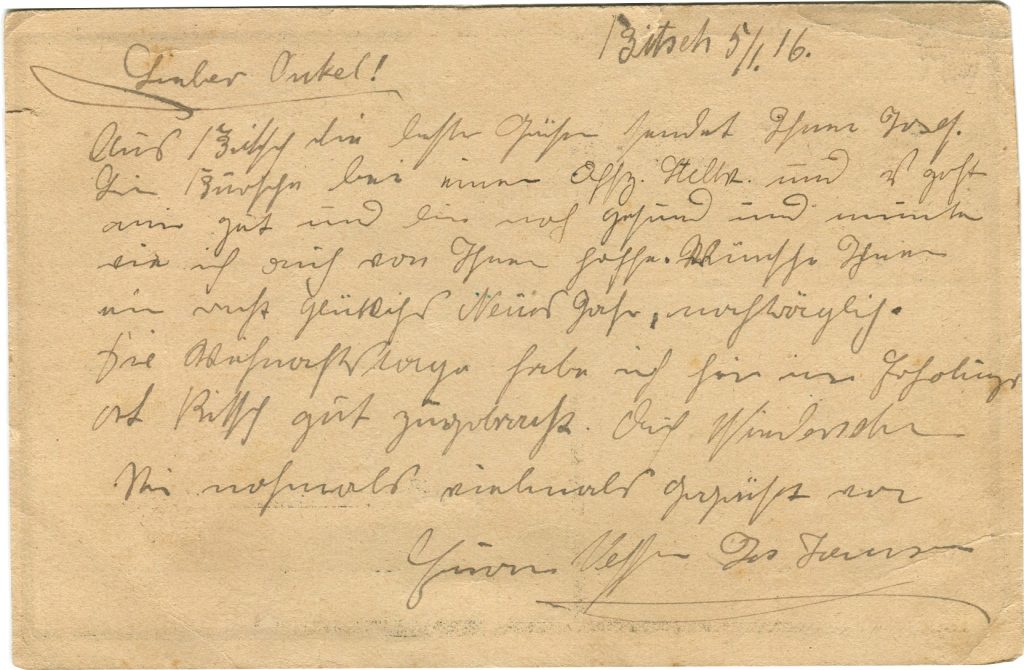 Bitsch 5/1. 16.
Lieber Onkel!
Aus Bitsch die beste Grüße sendet Ihnen Josef.
Bin Bursche bei einem Offz. Stellv. und es geht
mir gut und bin noch gesund und munter
wie ich auch von Ihnen hoffe. Wünsche Ihnen
ein recht glückliches Neues Jahr, nachträglich.
Die Weihnachtstage habe ich hier im Erholungs
ort Bitsch gut zugebracht. Auf Wiedersehn
Sei nochmals vielmals gegrüßt von
Euren Neffen Jos